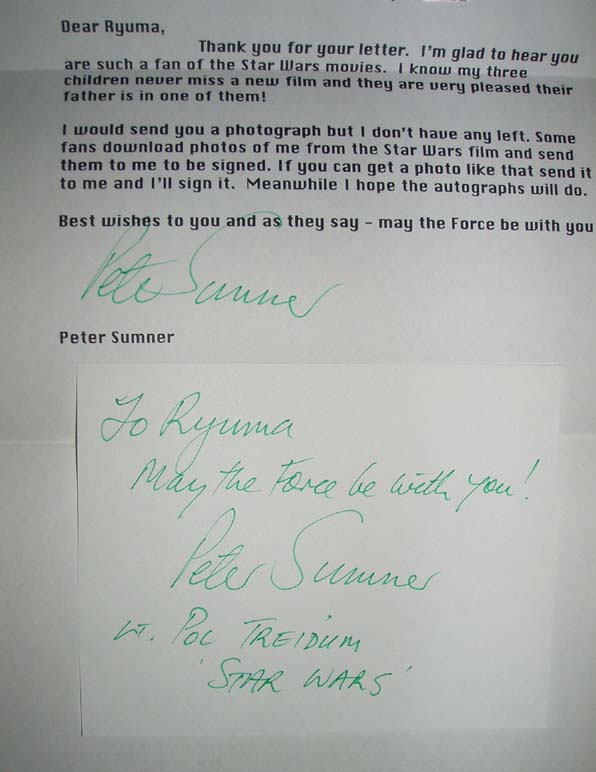 Dear Ryuma,
Thank you for your letter. I'm glad to hear you
are such a fan of the Star Wars movies. I know my three
children never miss a new film and they are very pleased their
father is in one of them!
I would send you a photograph but I don't have any left. Some
fans download photos of me from the Star Wars film and send
them to me to be signed. If you can get a photo like that send it
to me and I'll sign it. Meanwhile I hope the autographs will do.
Best wishes to you and as they say - may the Force be with you
Peter Sumner
Peter Sumner
To Ryuma
May the Force be with you!
Peter Sumner
LT. POL TREIDUM
'STAR WARS'